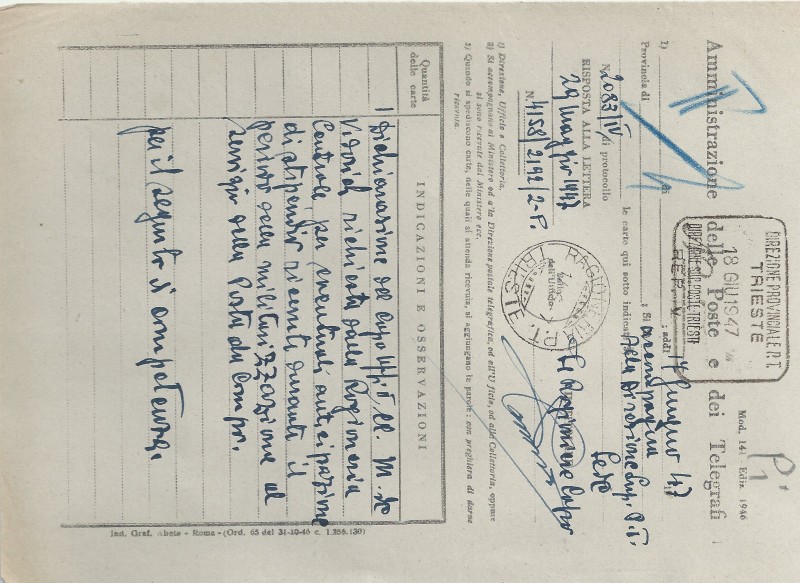 Mod. 141 Ediz. 1946
Amministrazione delle Poste e dei Telegrafi
DIREZIONE PROVINCIALE P.T.
TRIESTE
18 GIU 1947
DIREZIONE SUP. POSTE TRIESTE
REP. V
(1)
di
; addì 14 Giugno 47
Provincia di
; Si accompagna
N. 2083/IV di protocollo
le carte qui sotto indicate
alla Direzione Sup. P.T.
RISPOSTA ALLA LETTERA
29 maggio 1947
Sede
N. 4158/2192/2-P.
RAGIONERIA P.T.
TRIESTE
Il Ragioniere Capo
1) Direzione, Ufficio o Collettoria.
2) Si accompagnano al Ministero od a'la Direzione postale telegrafica, od all'U ficio, od alla Collettoria, oppure
si sono ricevute dal Ministero ecc.
3) Quando si spediscono carte, delle quali si attenda ricevuta, si aggiungano le parole: con preghiera di darne
ricevuta.
Quantità
delle carte
INDICAZIONI E OSSERVAZIONI
1
Dichiarazione del Capo Uff.
richiesta dalla Ragioneria
Controllo per eventuali anticipazione
di stipendio ricevuti durante il
periodo della militarizzazione al
servizio della Posta da Campo.
per il seguito di competenza.
Ind. Graf. Abete - Roma - (Ord. 65 del 31-10-46 c. 1.256.130)